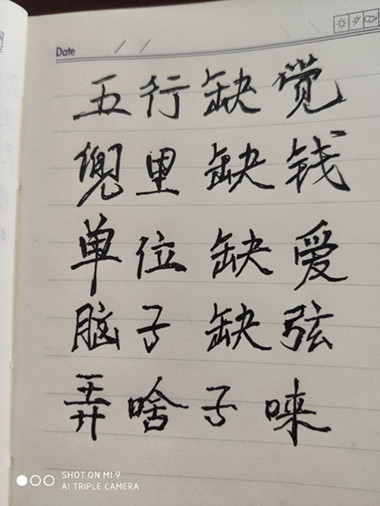 Date / /
五行缺觉
兜里缺钱
单位缺爱
脑子缺弦
弄啥子唻
SHOT ON MI 9
AI TRIPLE CAMERA